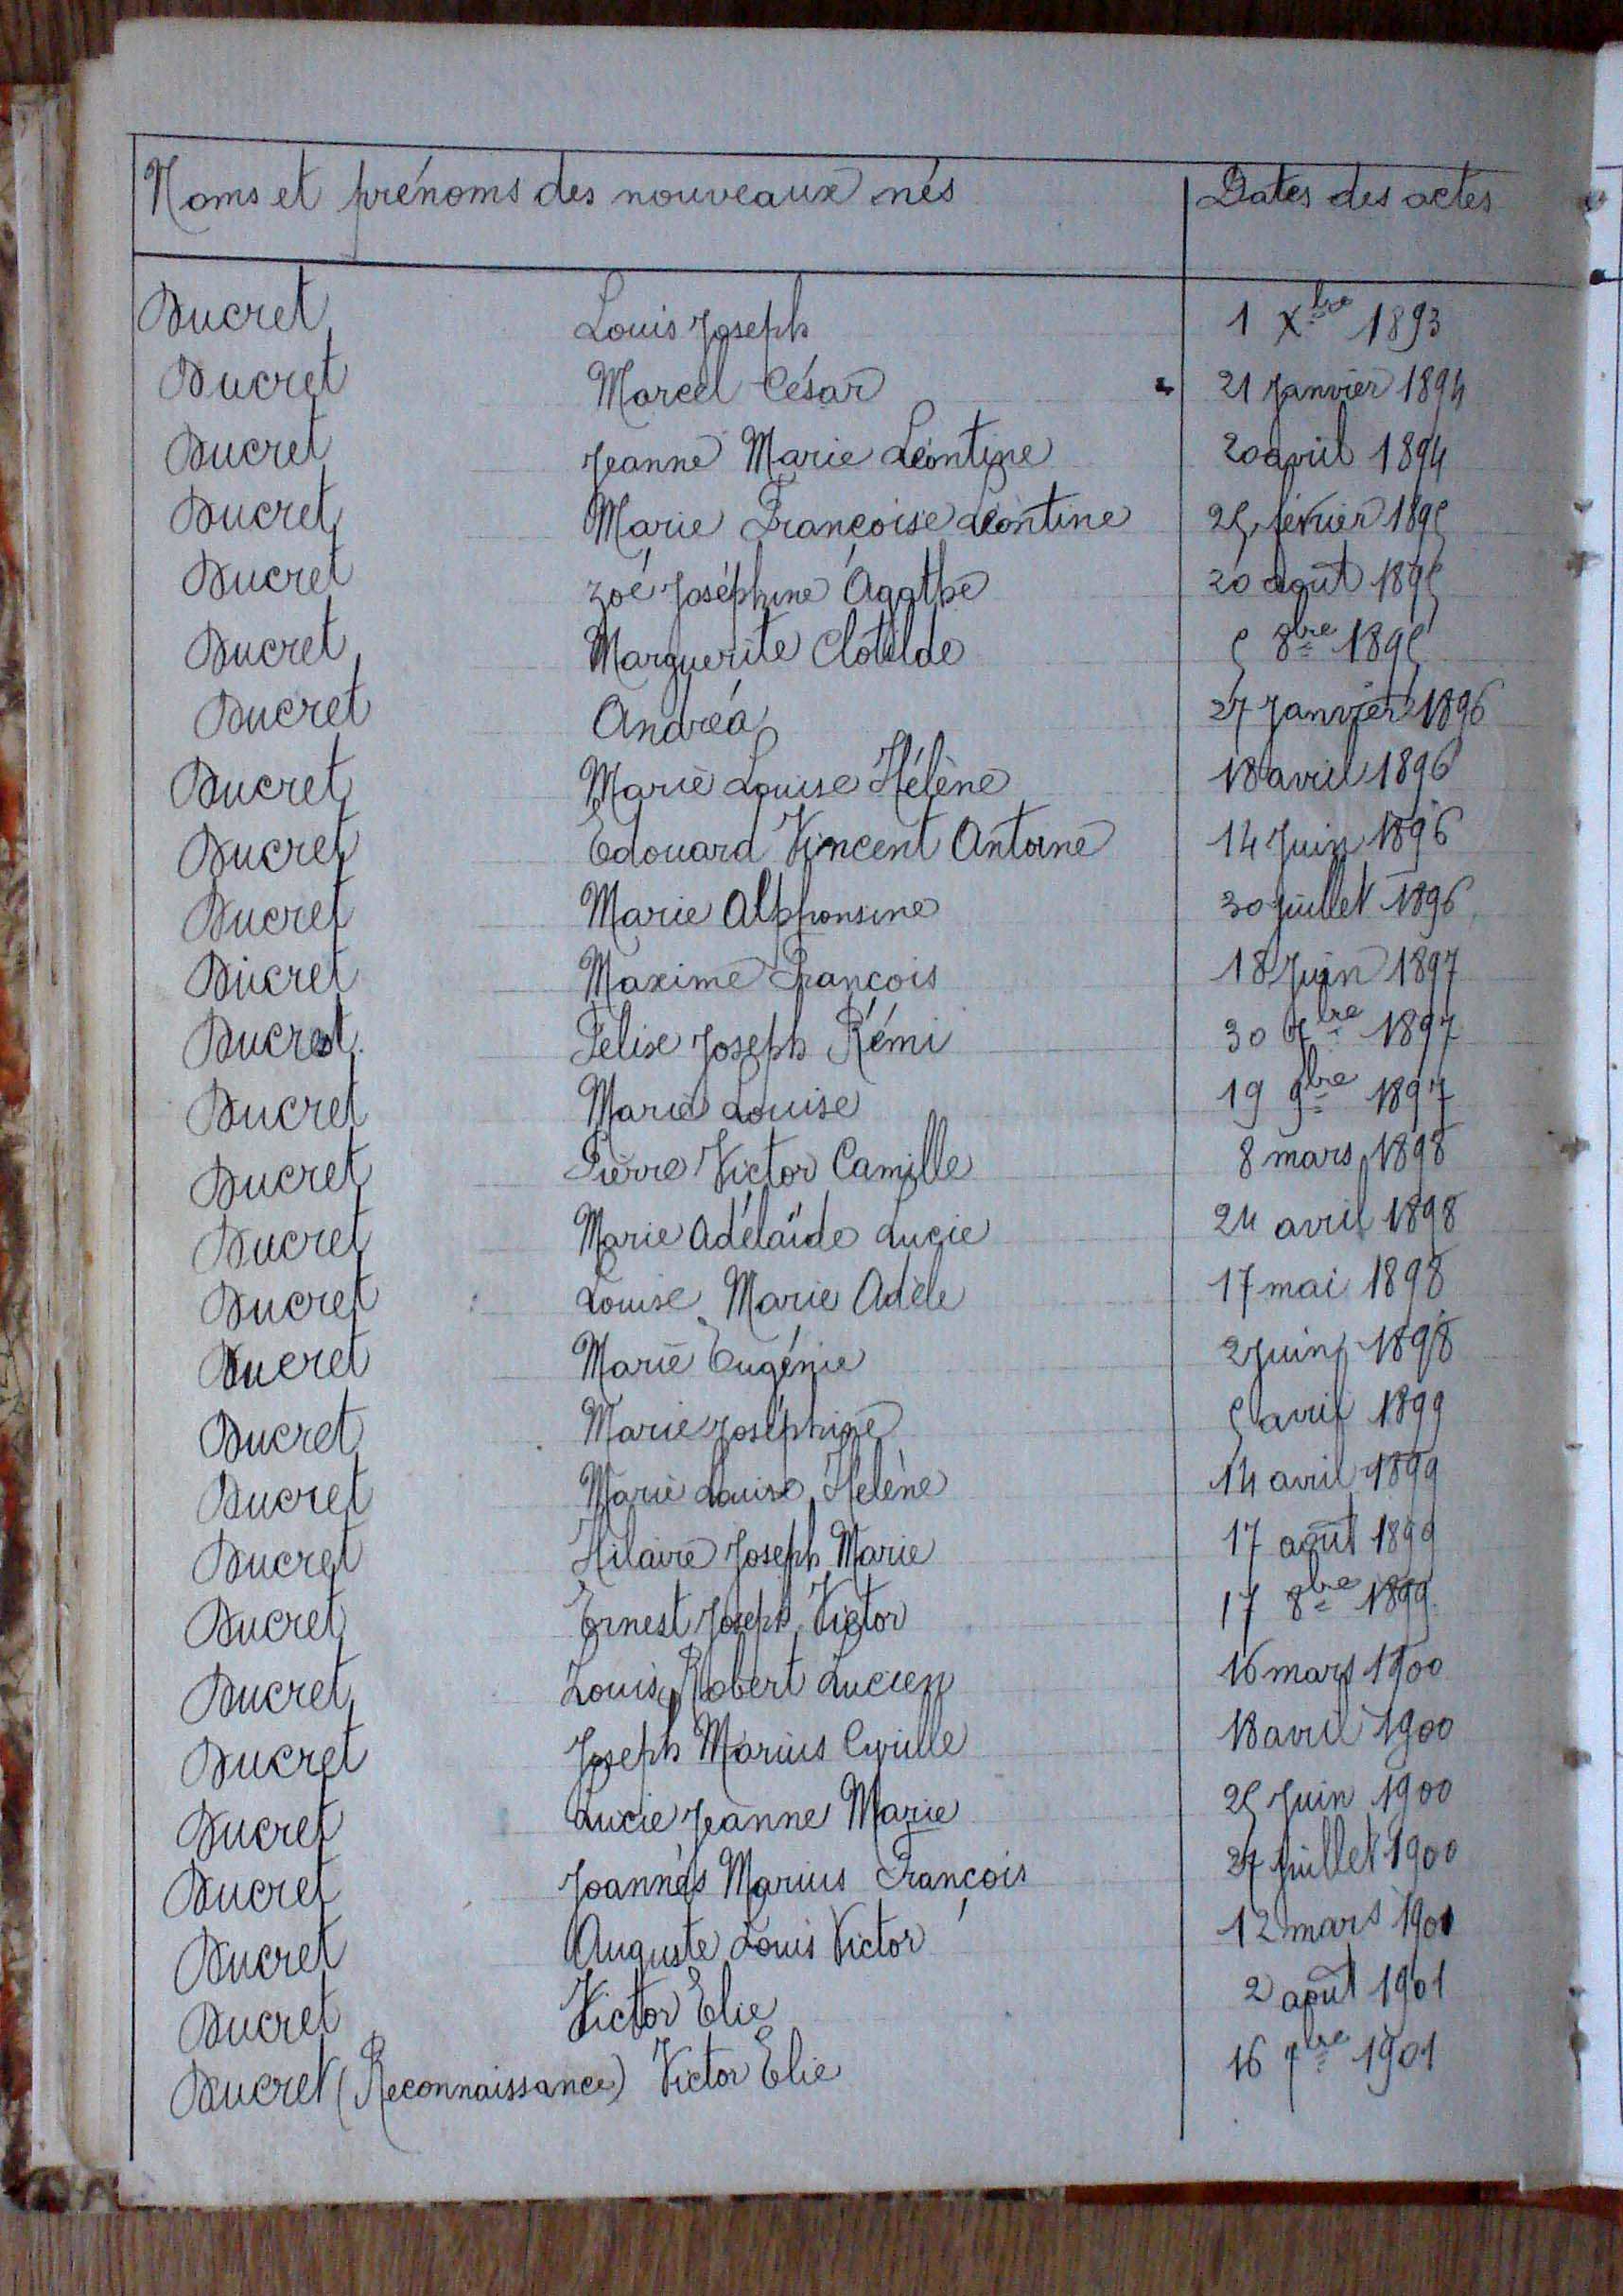 Noms et prénoms des nouveaux nés Dates des actes
Ducret Louis Joseph 1 Xbre 1893
Ducret Marcel César 21 Janvier 1894
Ducret Jeanne Marie Léontine 20 avril 1894
Ducret Marie Françoise Léontine 25 février 1895
Ducret Zoé Joséphine Agathe 20 août 1895
Ducret Marguerite Clotilde 5 8bre 1895
Ducret Andréa 27 Janvier 1896
Ducret Marie Louise Hélène 18 avril 1896
Ducret Edouard Vincent Antoine 14 Juin 1896
Ducret Marie Alphonsine 30 Juillet 1896
Ducret Maxime François 18 Juin 1897
Ducret Felix Joseph Rémi 30 7bre 1897
Ducret Marie Louise 19 9bre 1897
Ducret Pierre Victor Camille 8 mars 1898
Ducret Marie Adélaïde Lucie 24 avril 1898
Ducret Louise Marie Adèle 17 mai 1898
Ducret Marie Eugénie 2 Juin 1898
Ducret Marie Joséphine 5 avril 1899
Ducret Marie Louise Hélène 14 avril 1899
Ducret Hilaire Joseph Marie 17 août 1899
Ducret Ernest Joseph Victor 17 8bre 1899
Ducret Louis Robert Lucien 16 mars 1900
Ducret Joseph Marius Cyrille 18 avril 1900
Ducret Lucie Jeanne Marie 25 Juin 1900
Ducret Joannès Marius François 27 Juillet 1900
Ducret Auguste Louis Victor 12 mars 1901
Ducret Victor Elie 2 août 1901
Ducret (Reconnaissance) Victor Elie 16 7bre 1901